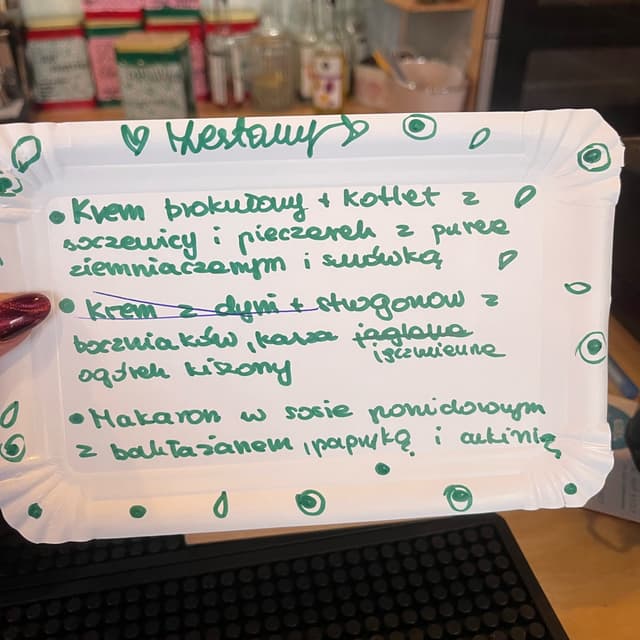 Zestawy
Krem brokułowy + kotlet z
soczewicy i pieczarek z puree
ziemniaczanym i surówką
Krem z dyni + strogonow z
boczniaków, kasza jaglana
jęczmienna
ogórek kiszony
Makaron w sosie pomidorowym
z bakłażanem, papryką i cukinią